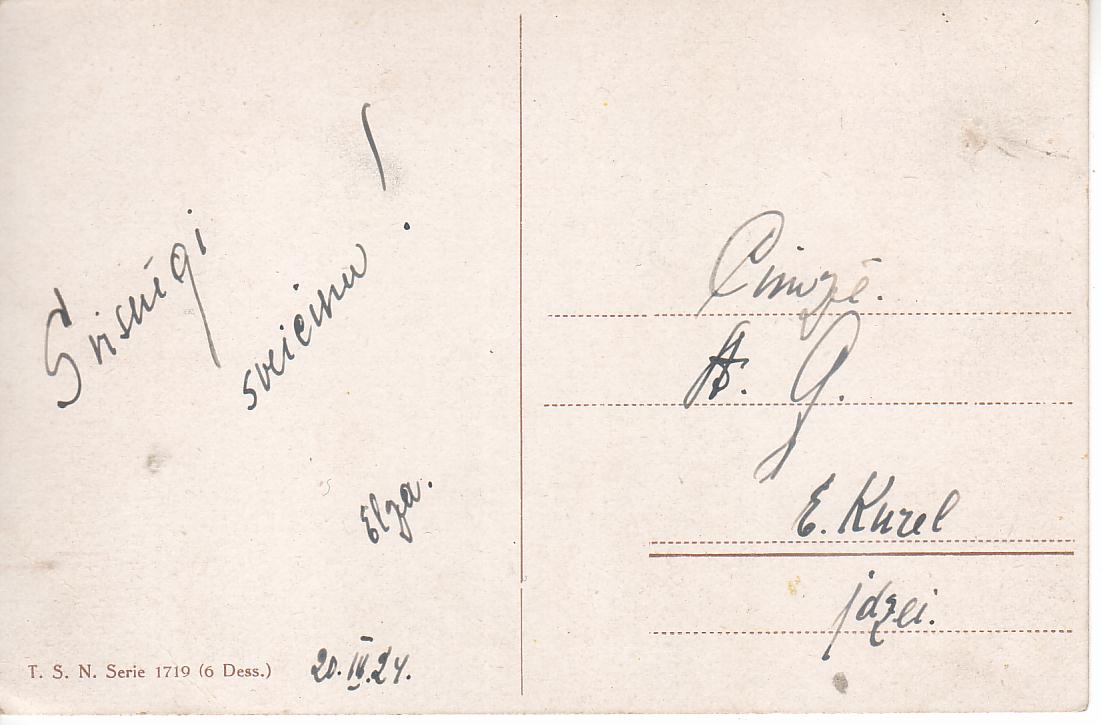 Sirsnīgi
sveicinu!
Elza.
20. IV. 24.
T. S. N. Serie 1719 (6 Dess.)
A. G.
E. Kurel
jdzei.